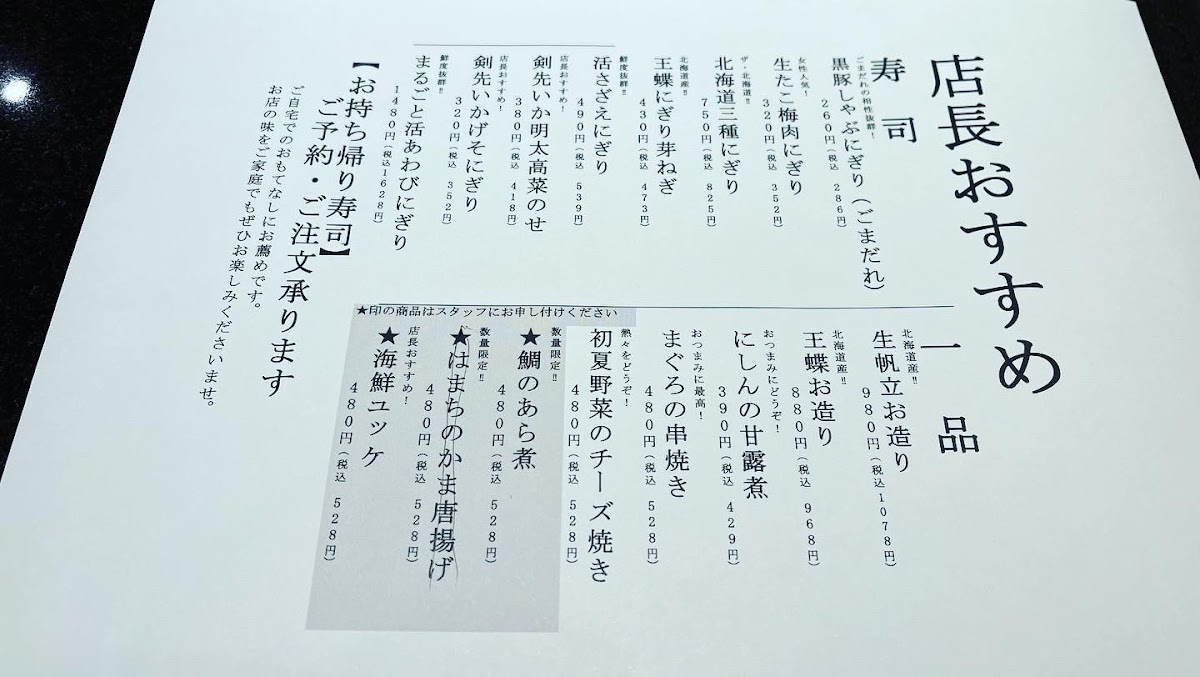 店長おすすめ
寿 司
ごまだれの相性抜群!
黒豚しゃぶにぎり(ごまだれ)
260円(税込 286円)
女性人気!
生たこ梅肉にぎり
320円(税込 352円)
ザ・北海道!!
北海道三種にぎり
750円(税込 825円)
北海道産!!
王蝶にぎり芽ねぎ
430円(税込 473円)
鮮度抜群!!
活さざえにぎり
490円(税込 539円)
店長おすすめ!
剣先いか明太高菜のせ
380円(税込 418円)
店長おすすめ!
剣先いかげそにぎり
320円(税込 352円)
鮮度抜群!!
まるごと活あわびにぎり
1480円(税込1628円)
一 品
北海道産!!
生帆立お造り
980円(税込1078円)
北海道産!!
王蝶お造り
880円(税込 968円)
おつまみにどうぞ!
にしんの甘露煮
390円(税込 429円)
おつまみに最高!
まぐろの串焼き
480円(税込 528円)
熱々をどうぞ!
初夏野菜のチーズ焼き
480円(税込 528円)
★印の商品はスタッフにお申し付けください
数量限定!!
★鯛のあら煮
480円(税込 528円)
数量限定!!
★はまちのかま唐揚げ
480円(税込 528円)
店長おすすめ!
★海鮮ユッケ
480円(税込 528円)
【お持ち帰り寿司】
ご予約・ご注文承ります
ご自宅でのおもてなしにお薦めです。
お店の味をご家庭でもぜひお楽しみくださいませ。